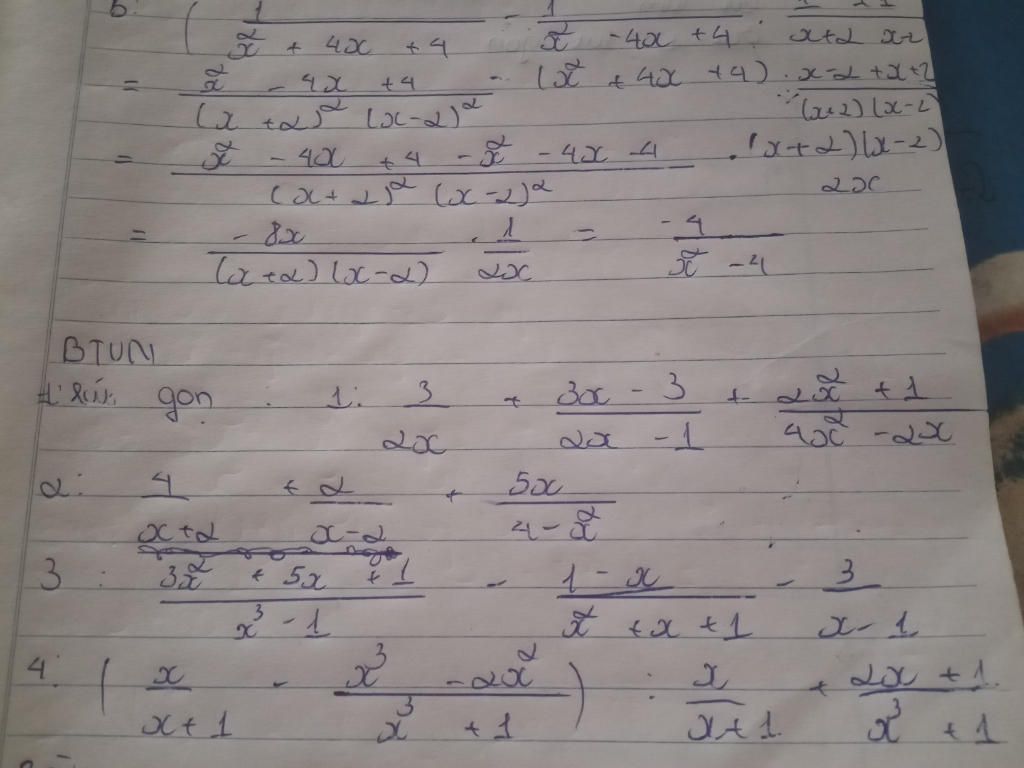 b: ( 1/(x² + 4x + 4) - 1/(x² - 4x + 4) : 1/(x+2) + 1/(x-2)
= (x² - 4x + 4 - (x² + 4x + 4))/((x+2)² (x-2)²) : (x-2+x+2)/((x+2)(x-2))
= (x² - 4x + 4 - x² - 4x - 4)/((x+2)² (x-2)²) . (x+2)(x-2)/2x
= -8x/((x+2)(x-2)) . 1/2x = -4/(x² - 4)
BTVN
1: Rút gọn : 1: 3/2x + (3x - 3)/(2x - 1) + (2x² + 1)/(4x² - 2x)
2: 4/(x+2) + 2/(x-2) + 5x/(4 - x²)
3: (3x² + 5x + 1)/(x³ - 1) - (1 - x)/(x² + x + 1) - 3/(x - 1)
4: ( x/(x+1) - (x³ - 2x²)/(x³ + 1) ) : x/(x+1) + (2x + 1)/(x³ + 1)